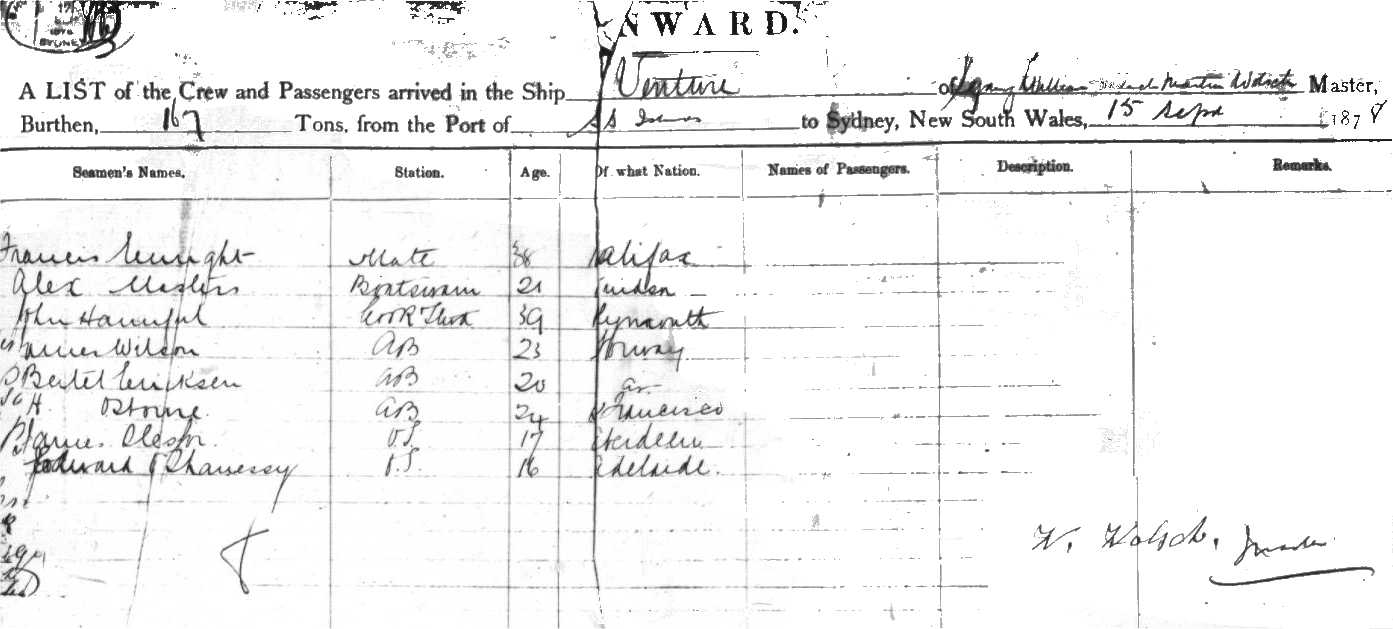 17
1878
SYDNEY
NWARD.
A LIST of the Crew and Passengers arrived in the Ship Venture of William Martin Wolsch Master,
Burthen, 167 Tons, from the Port of S S Islands to Sydney, New South Wales, 15 Sept 1878
Seamen's Names. Station. Age. Of what Nation. Names of Passengers. Description. Remarks.
Francis Enright Mate 38 Halifax
Alex Masters Boatswain 21 London
John Hannaful Cook 39 Plymouth
James Wilson AB 23 Norway
Bertel Ericksen AB 20 do
H Osborne AB 24 S Francisco
James O.S. 17 Aberdeen
Edward O'Shanessy O.S. 16 Adelaide.
8
W. Wolsch, Master